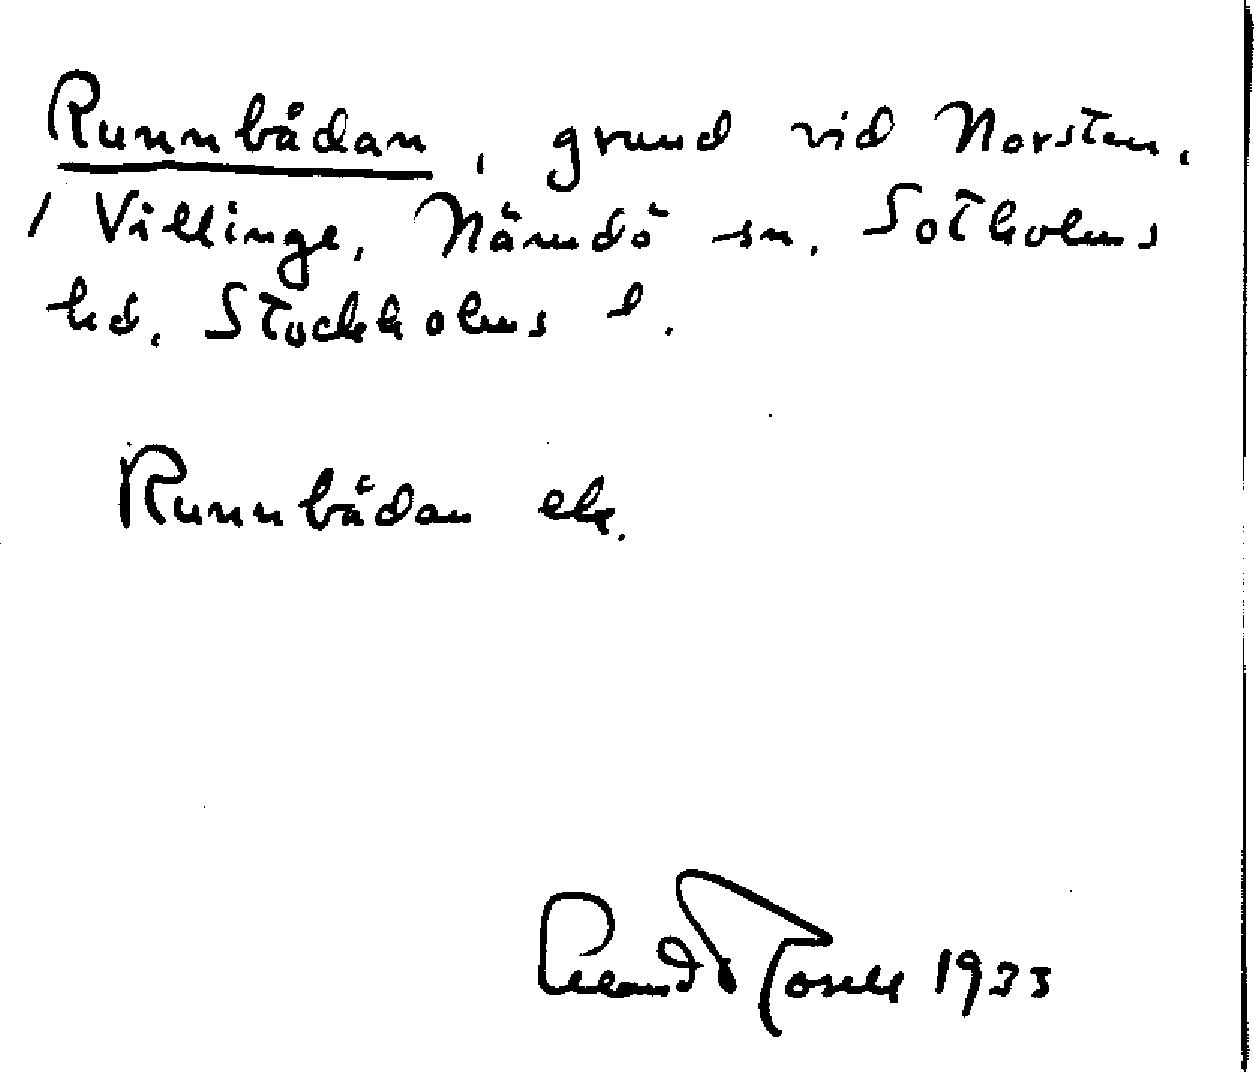 Runnbådan, grund vid Norsten,
/ Villinge, Nämdö sn. Sotholms
hd. Stockholms l.
Runnbådan ek.
Erland Rosell 1933